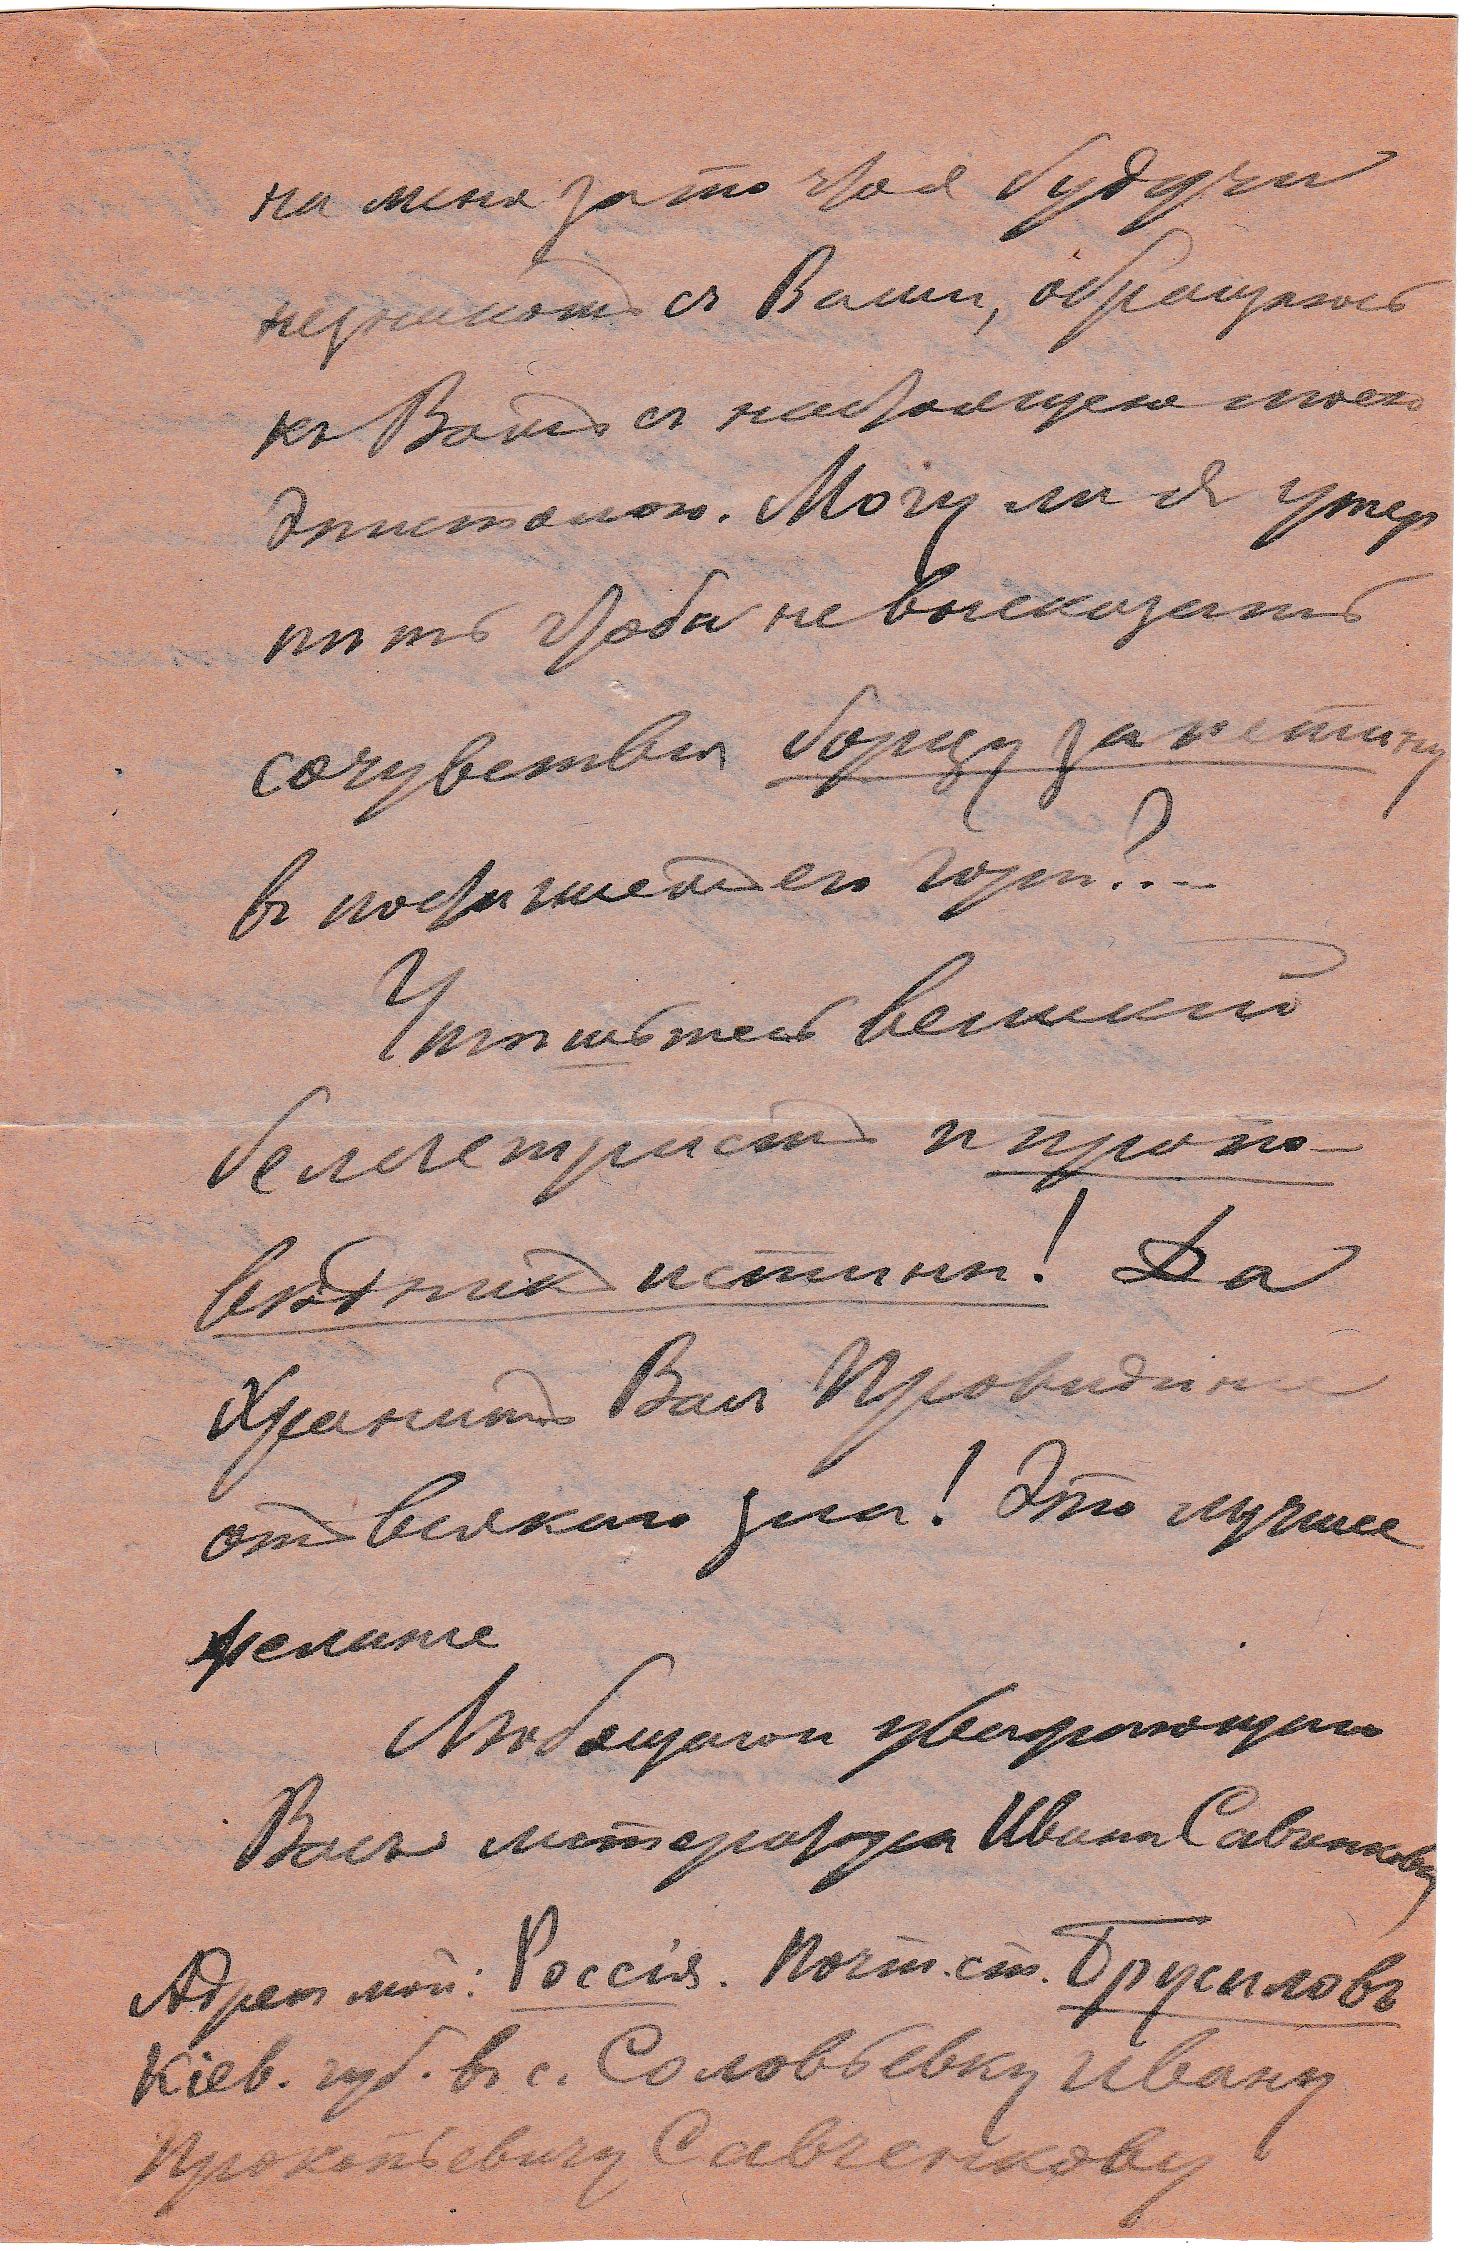 на меня за то что я будучи
незнакомъ съ Вами, обращаюсь
къ Вамъ съ настоящею моею
эпистолою. Могу ли я утер
пить чтобы не высказать
сочувствія борцу за истину
въ постигшемъ его горѣ?...
Утѣшьтесь великій
белетристъ и пропо-
вѣдникъ истины! Да
хранитъ Васъ Провидѣніе
отъ всякаго зла! Это лучшее
желаніе
Любящаго и уважающаго
Васъ литератора Ивана
Адресъ мой: Россія. Почт. ст. Брусиловъ
Кіев. губ. въ с. Соловьевку Ивану
Прокопьевичу Савченкову